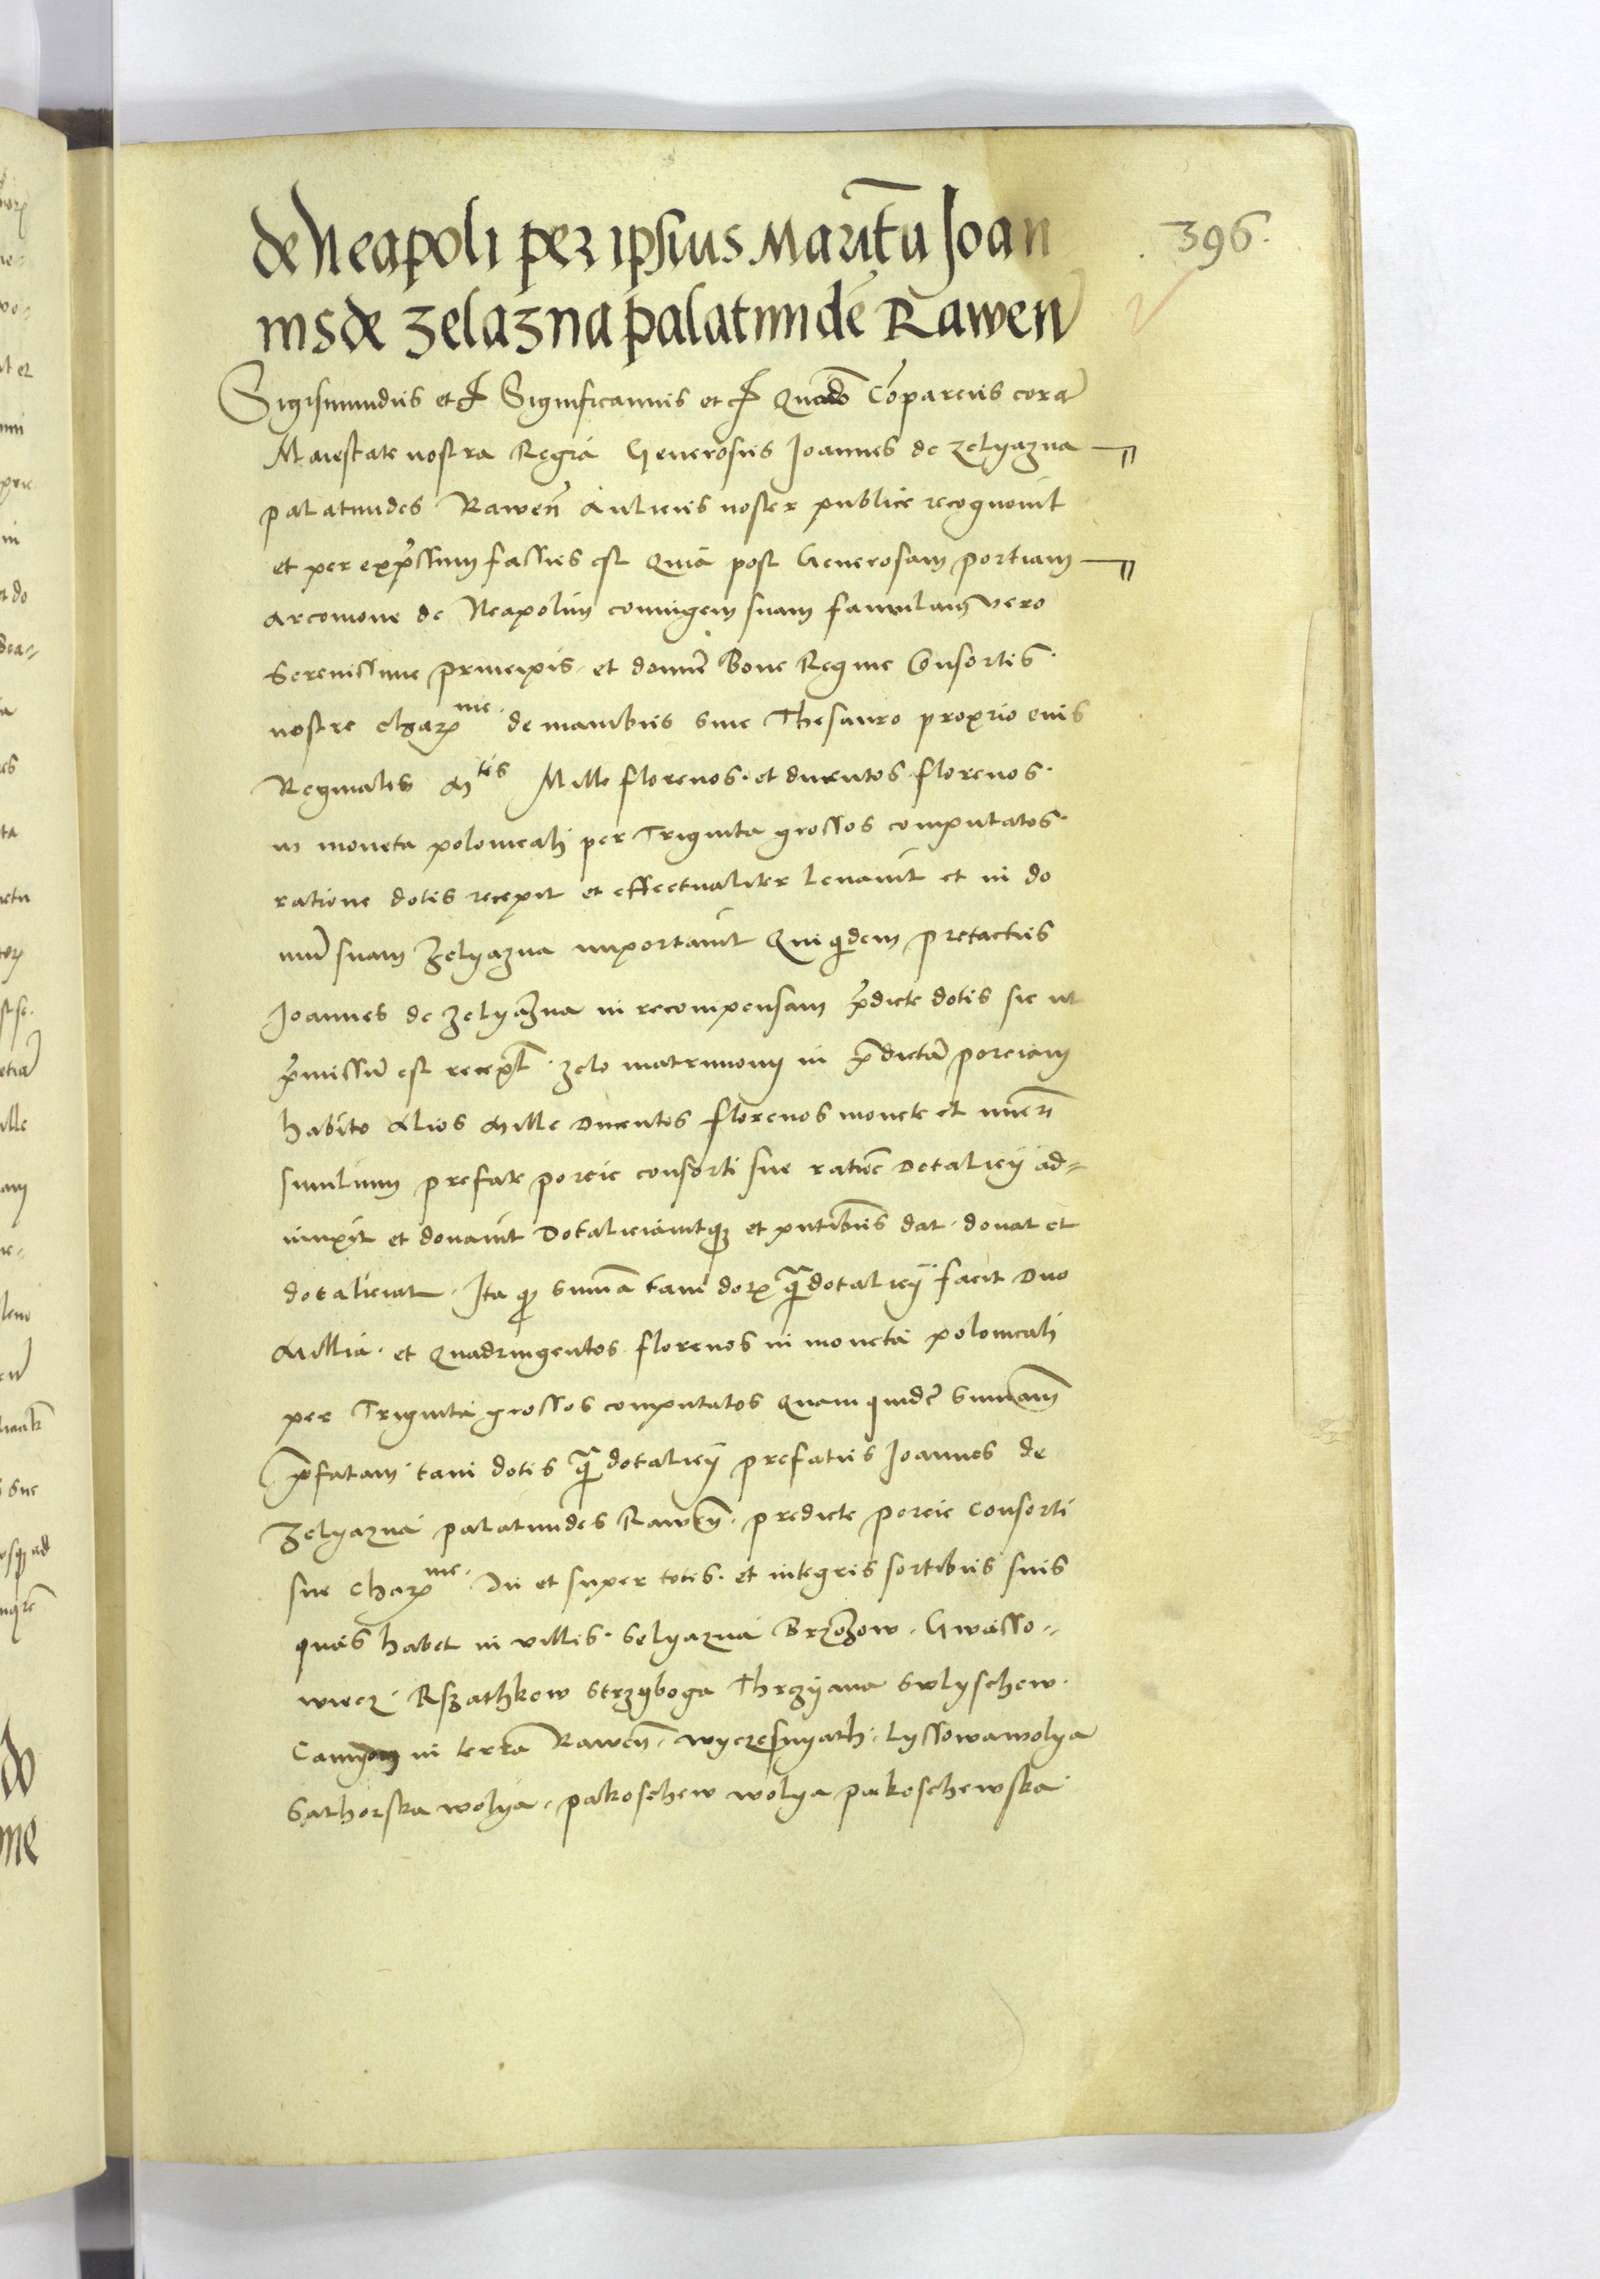 de Neapoli per ipsius Maritũ Joan
nis de Zelazna palatinidẽ Rawen̄
396.
Sigismundus etc̃ Significamus etc̃ Quõdo Cõparens corã
Maiestate nostra Regia Generosus Joannes de Zelyazna
palatinides Rawen̄ Aulicus noster publice recognovit
et per exp̃ssum fassus est Quia post Generosam portiam
Arcomone de Neapolim coniugem suam famulam vero
Serenissime principis et domĩe Bone Regine Consortis
nostre charme de manibus sive Thesauro proprio eius
Reginalis Mtis Mille florenos et ducentos florenos
in moneta polonicali per Triginta grossos computatos
ratione dotis recepit et effectualiter levavit et in do
mũ suam Zelyazna importavit Qui q̃dem pretactus
Joannes de Zelyazna in recompensam p̃dicte dotis sic ut
p̃missũ est recept̃ zelo matrimonij in p̃dictã porciam
habito Alios Mille Ducentos florenos monete et nũeri
similium prefate porcie consorti sue ratiõe Dotalicij ad=
iunxit et donavit Dotaliciavitq et p̃ntibus dat donat et
dotaliciat Ita q sum̃a tam dot q̃ dotalicij facit Duo
Millia et Quadringentos florenos in moneta polonicali
per Triginta grossos computatos Quam quidẽ sum̃am
p̃fatam tam dotis q̃ dotalicij prefatus Joannes de
Zelyazna palatinides Rawen̄ predicte porcie Consorti
sue charme In et super totis et integris sortibus suis
quas habet in villis Selyazna Brzozow Gwasso=
wiecz Rszathkow Strzyboga Thrzyana Swlyschew
in terra Rawen̄ Lyssowawolya
Sathorska wolya pakoschew wolya pakoschewska